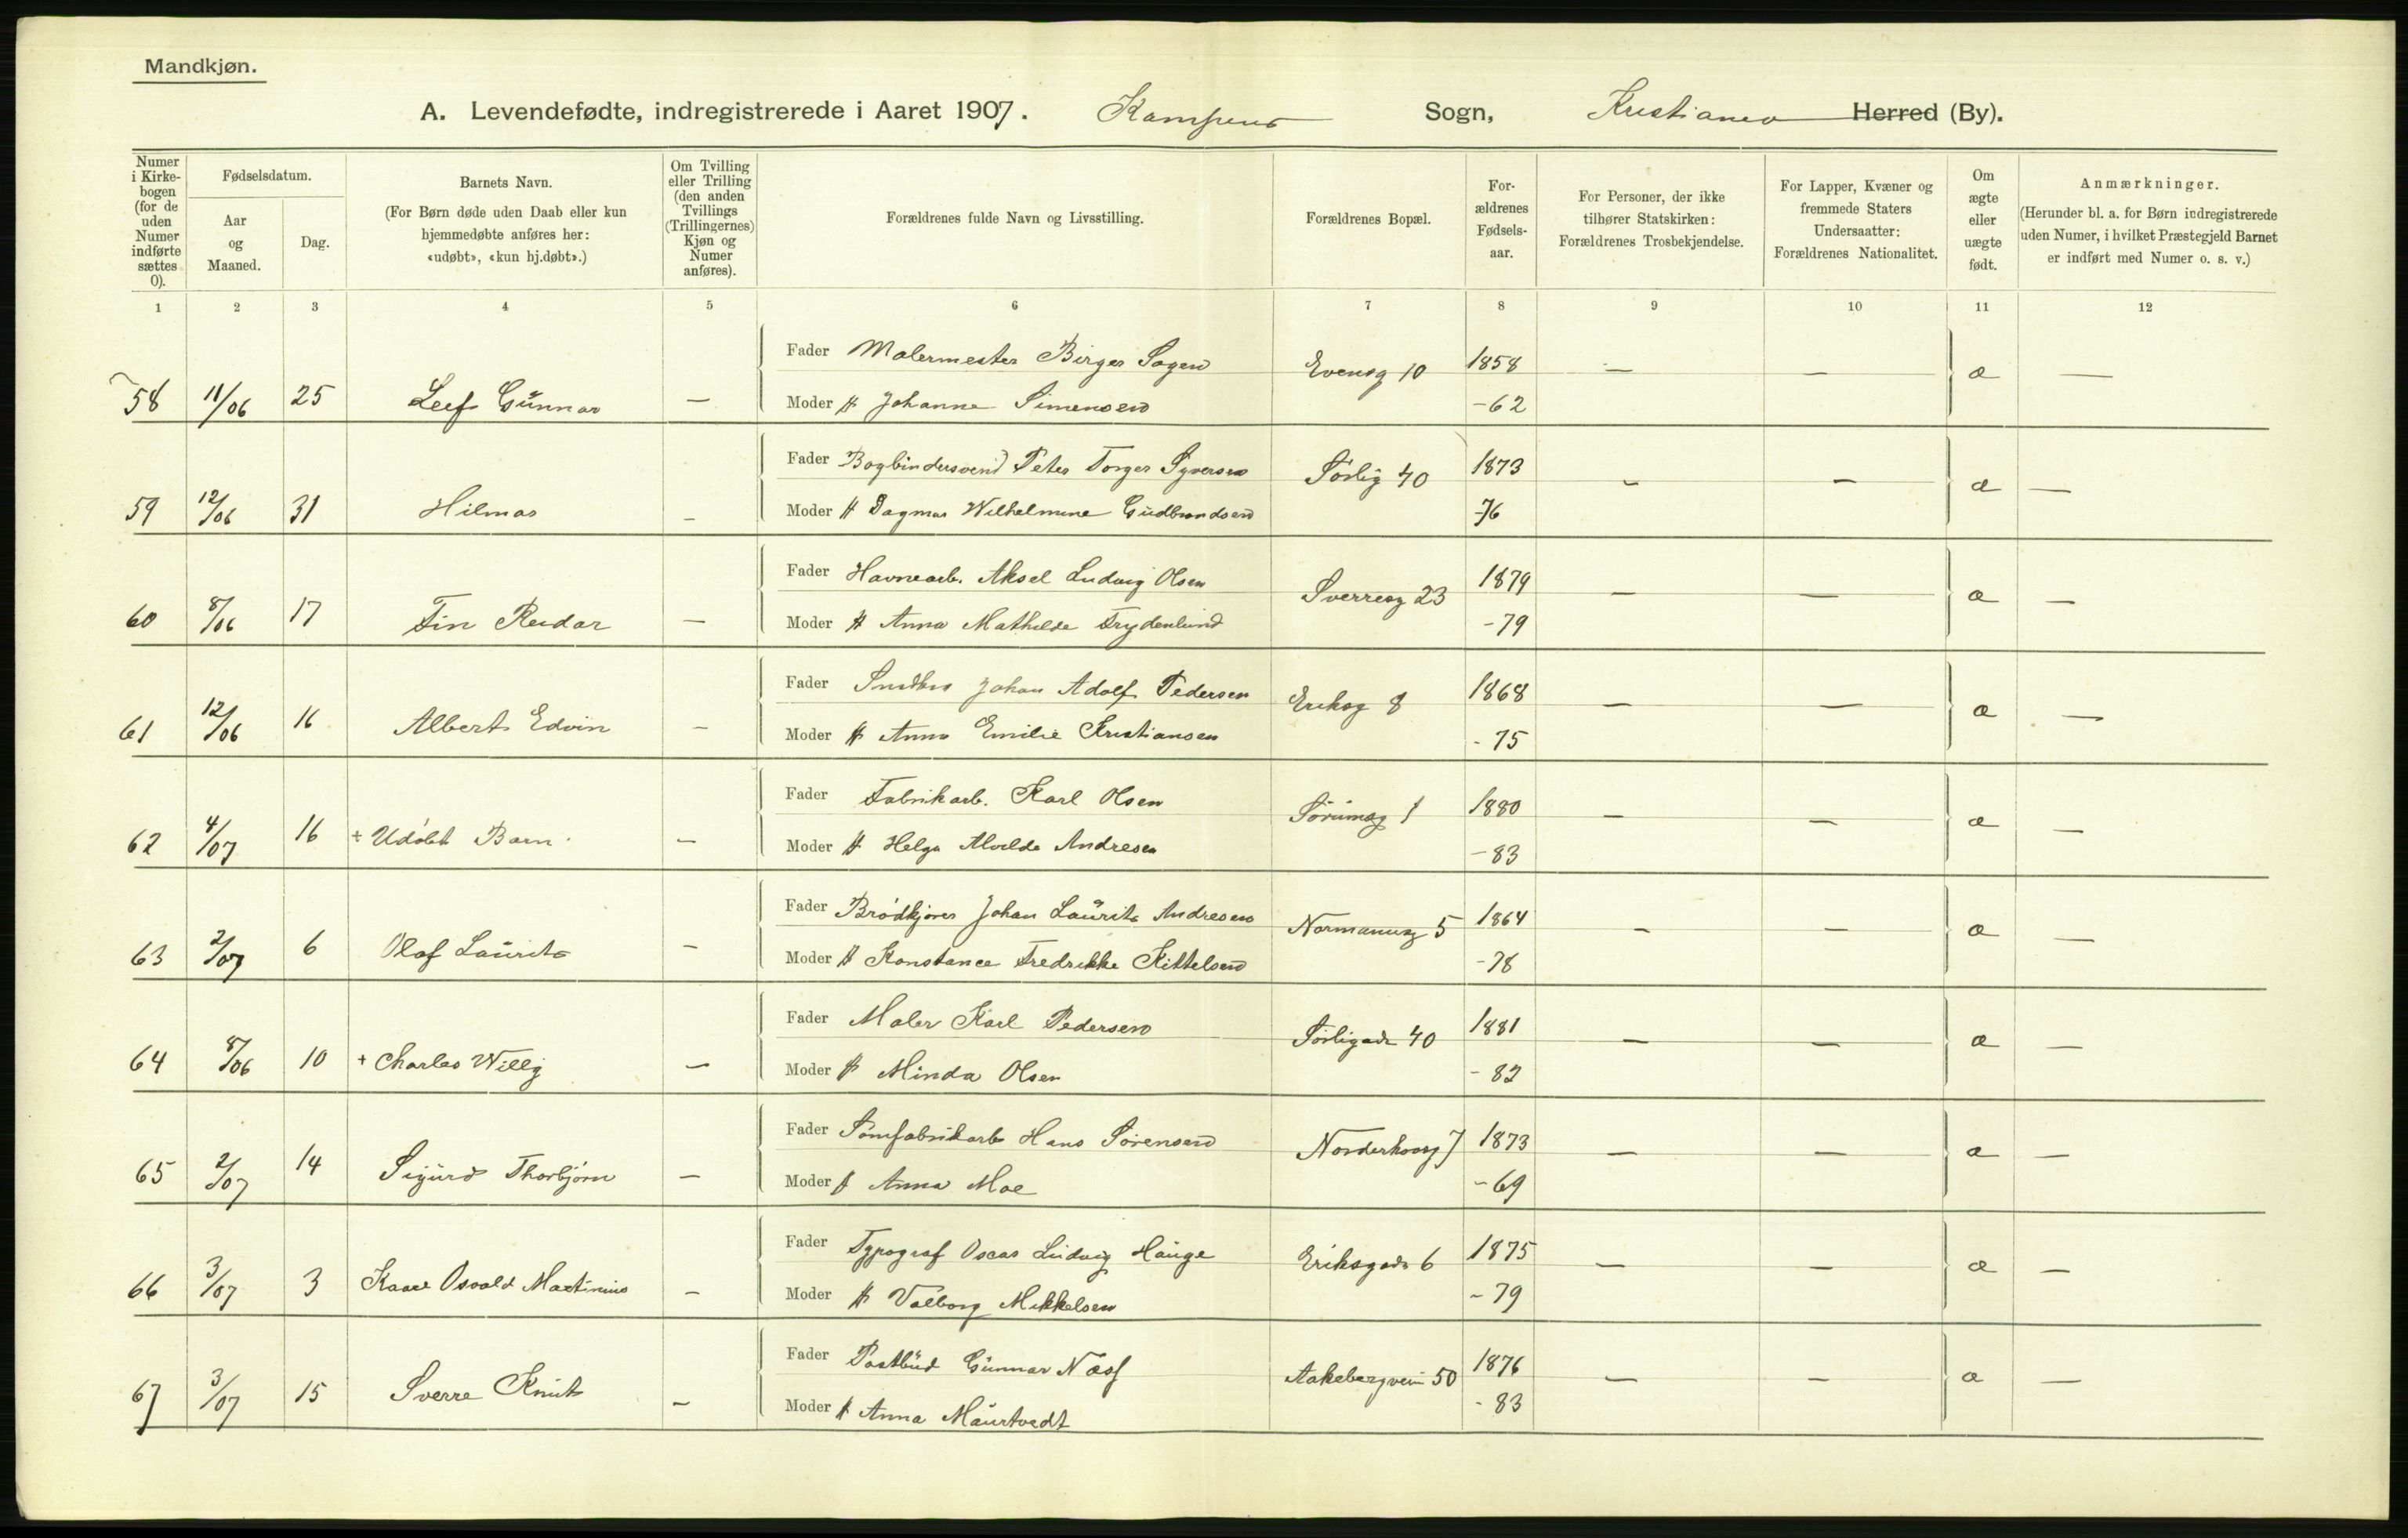 Mandkjøn.
A. Levendefødte, indregistrerede i Aaret 1907. Kampens Sogn, Kristiania Herred (By).
Numer i Kirkebogen (for de uden Numer indførte sættes 0).
Fødselsdatum.
Aar og Maaned.
Dag.
Barnets Navn.
(For Børn døde uden Daab eller kun hjemmedøbte anføres her: «udøbt», «kun hj.døbt».)
Om Tvilling eller Trilling (den anden Tvillings (Trillingernes) Kjøn og Numer anføres).
Forældrenes fulde Navn og Livsstilling.
Forældrenes Bopæl.
Forældrenes Fødselsaar.
For Personer, der ikke tilhører Statskirken: Forældrenes Trosbekjendelse.
For Lapper, Kvæner og fremmede Staters Undersaatter: Forældrenes Nationalitet.
Om ægte eller uægte født.
Anmærkninger.
(Herunder bl. a. for Børn indregistrerede uden Numer, i hvilket Præstegjeld Barnet er indført med Numer o. s. v.)
1 2 3 4 5 6 7 8 9 10 11 12
Fader Malermester Birger Sagen Evensg 10 1858 — — æ —
58 11/06 25 Leif Gunnar — Moder H Johanne Simensen -62
Fader Bogbindersvend Peter Torger Syversen Sørlig 40 1873 — — æ —
59 12/06 31 Hilmar — Moder H Dagmar Wilhelmine Gudbrandsen -76
Fader Havnearb. Aksel Ludvig Olsen Sverresg 23 1879 — — æ —
60 8/06 17 Fin Reidar — Moder H Anna Mathilde Frydenlund -79
Fader Snedker Johan Adolf Pedersen Eriksg 8 1868 — — æ —
61 12/06 16 Albert Edvin — Moder H Anna Emilie Kristiansen -75
Fader Fabrikarb. Karl Olsen Sørumsg 1 1880 — — æ —
62 4/07 16 + Udøbt Barn — Moder H Helga Alvilde Andresen -83
Fader Brødkjører Johan Laurits Andresen Normannsg 5 1864 — — æ —
63 2/07 6 Olaf Laurits — Moder H Konstance Fredrikke Kittelsen -78
Fader Maler Karl Pedersen Sørligade 40 1881 — — æ —
64 8/06 10 + Charles Willy — Moder H Minda Olsen -82
Fader Sømfabrikarb Hans Sørensen Norderhovsg 7 1873 — — æ —
65 2/07 14 Sigurd Thorbjørn — Moder H Anna Moe -69
Fader Typograf Oscar Ludvig Hauge Eriksgade 6 1875 — — æ —
66 3/07 3 Kaare Osvald Martinius — Moder H Valborg Mikkelsen -79
Fader Postbud Gunnar Næss Aakebergveien 50 1876 — — æ —
67 3/07 15 Sverre Knut — Moder H Anna Maurtvedt -83